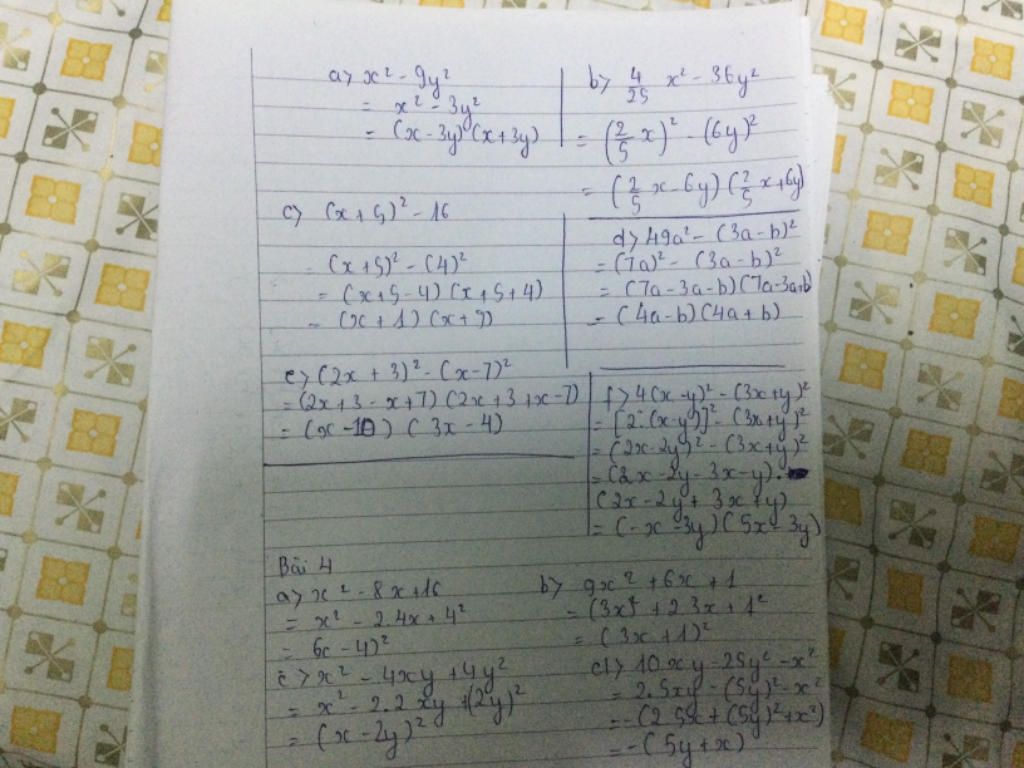 a> x² - 9y²
= x² - 3y²
= (x - 3y) (x + 3y)
b> 4/25 x² - 36y²
= (2/5 x)² - (6y)²
= (2/5 x - 6y) (2/5 x + 6y)
c> (x + 5)² - 16
= (x + 5)² - (4)²
= (x + 5 - 4) (x + 5 + 4)
= (x + 1) (x + 9)
d> 49a² - (3a - b)²
= (7a)² - (3a - b)²
= (7a - 3a - b) (7a - 3a + b)
= (4a - b) (4a + b)
e> (2x + 3)² - (x - 7)²
= (2x + 3 - x + 7) (2x + 3 + x - 7)
= (x - 10) (3x - 4)
f> 4(x - y)² - (3x + y)²
= [2.(x - y)]² - (3x + y)²
= (2x - 2y)² - (3x + y)²
= (2x - 2y - 3x - y).
(2x - 2y + 3x + y)
= (-x - 3y) (5x - 3y)
Bài 4
a> x² - 8x + 16
= x² - 2.4x + 4²
= (x - 4)²
b> 9x² + 6x + 1
= (3x)² + 2.3x + 1²
= (3x + 1)²
c> x² - 4xy + 4y²
= x² - 2.2xy + (2y)²
= (x - 2y)²
d> 10xy - 25y² - x²
= 2.5xy - (5y)² - x²
= -(2.5x + (5y)² + x²)
= -(5y + x)